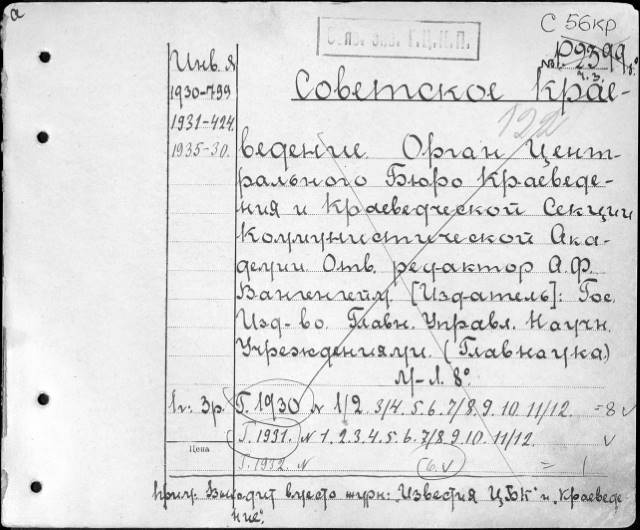 а
С 56кр
Обяз. экз. Г.Ц.К.П.
№ Р2399
ч.з.
Инв. №
1930-799
1931-424
1935-30.
Советское Крае-
122
ведение. Орган Цент-
рального Бюро Краеведе-
ния и Краеведческой Секции
Коммунистической Ака-
демии. Отв. редактор А.Ф.
Вангенгейм. [Издатель]: Гос.
Изд-во. Главн. Управл. Научн.
Учреждениями. (Главнаука)
М-Л. 8°.
1н. 3р. Г. 1930 № 1/2. 3/4. 5. 6. 7/8. 9. 10. 11/12. =8 V
Г. 1931. № 1. 2. 3. 4. 5. 6. 7/8. 9. 10. 11/12. V
Цена
Г. 1932. № 6. V = 1
Прим: Выходит вместо журн: "Известия ЦБК" и "Краеведе-
ние".